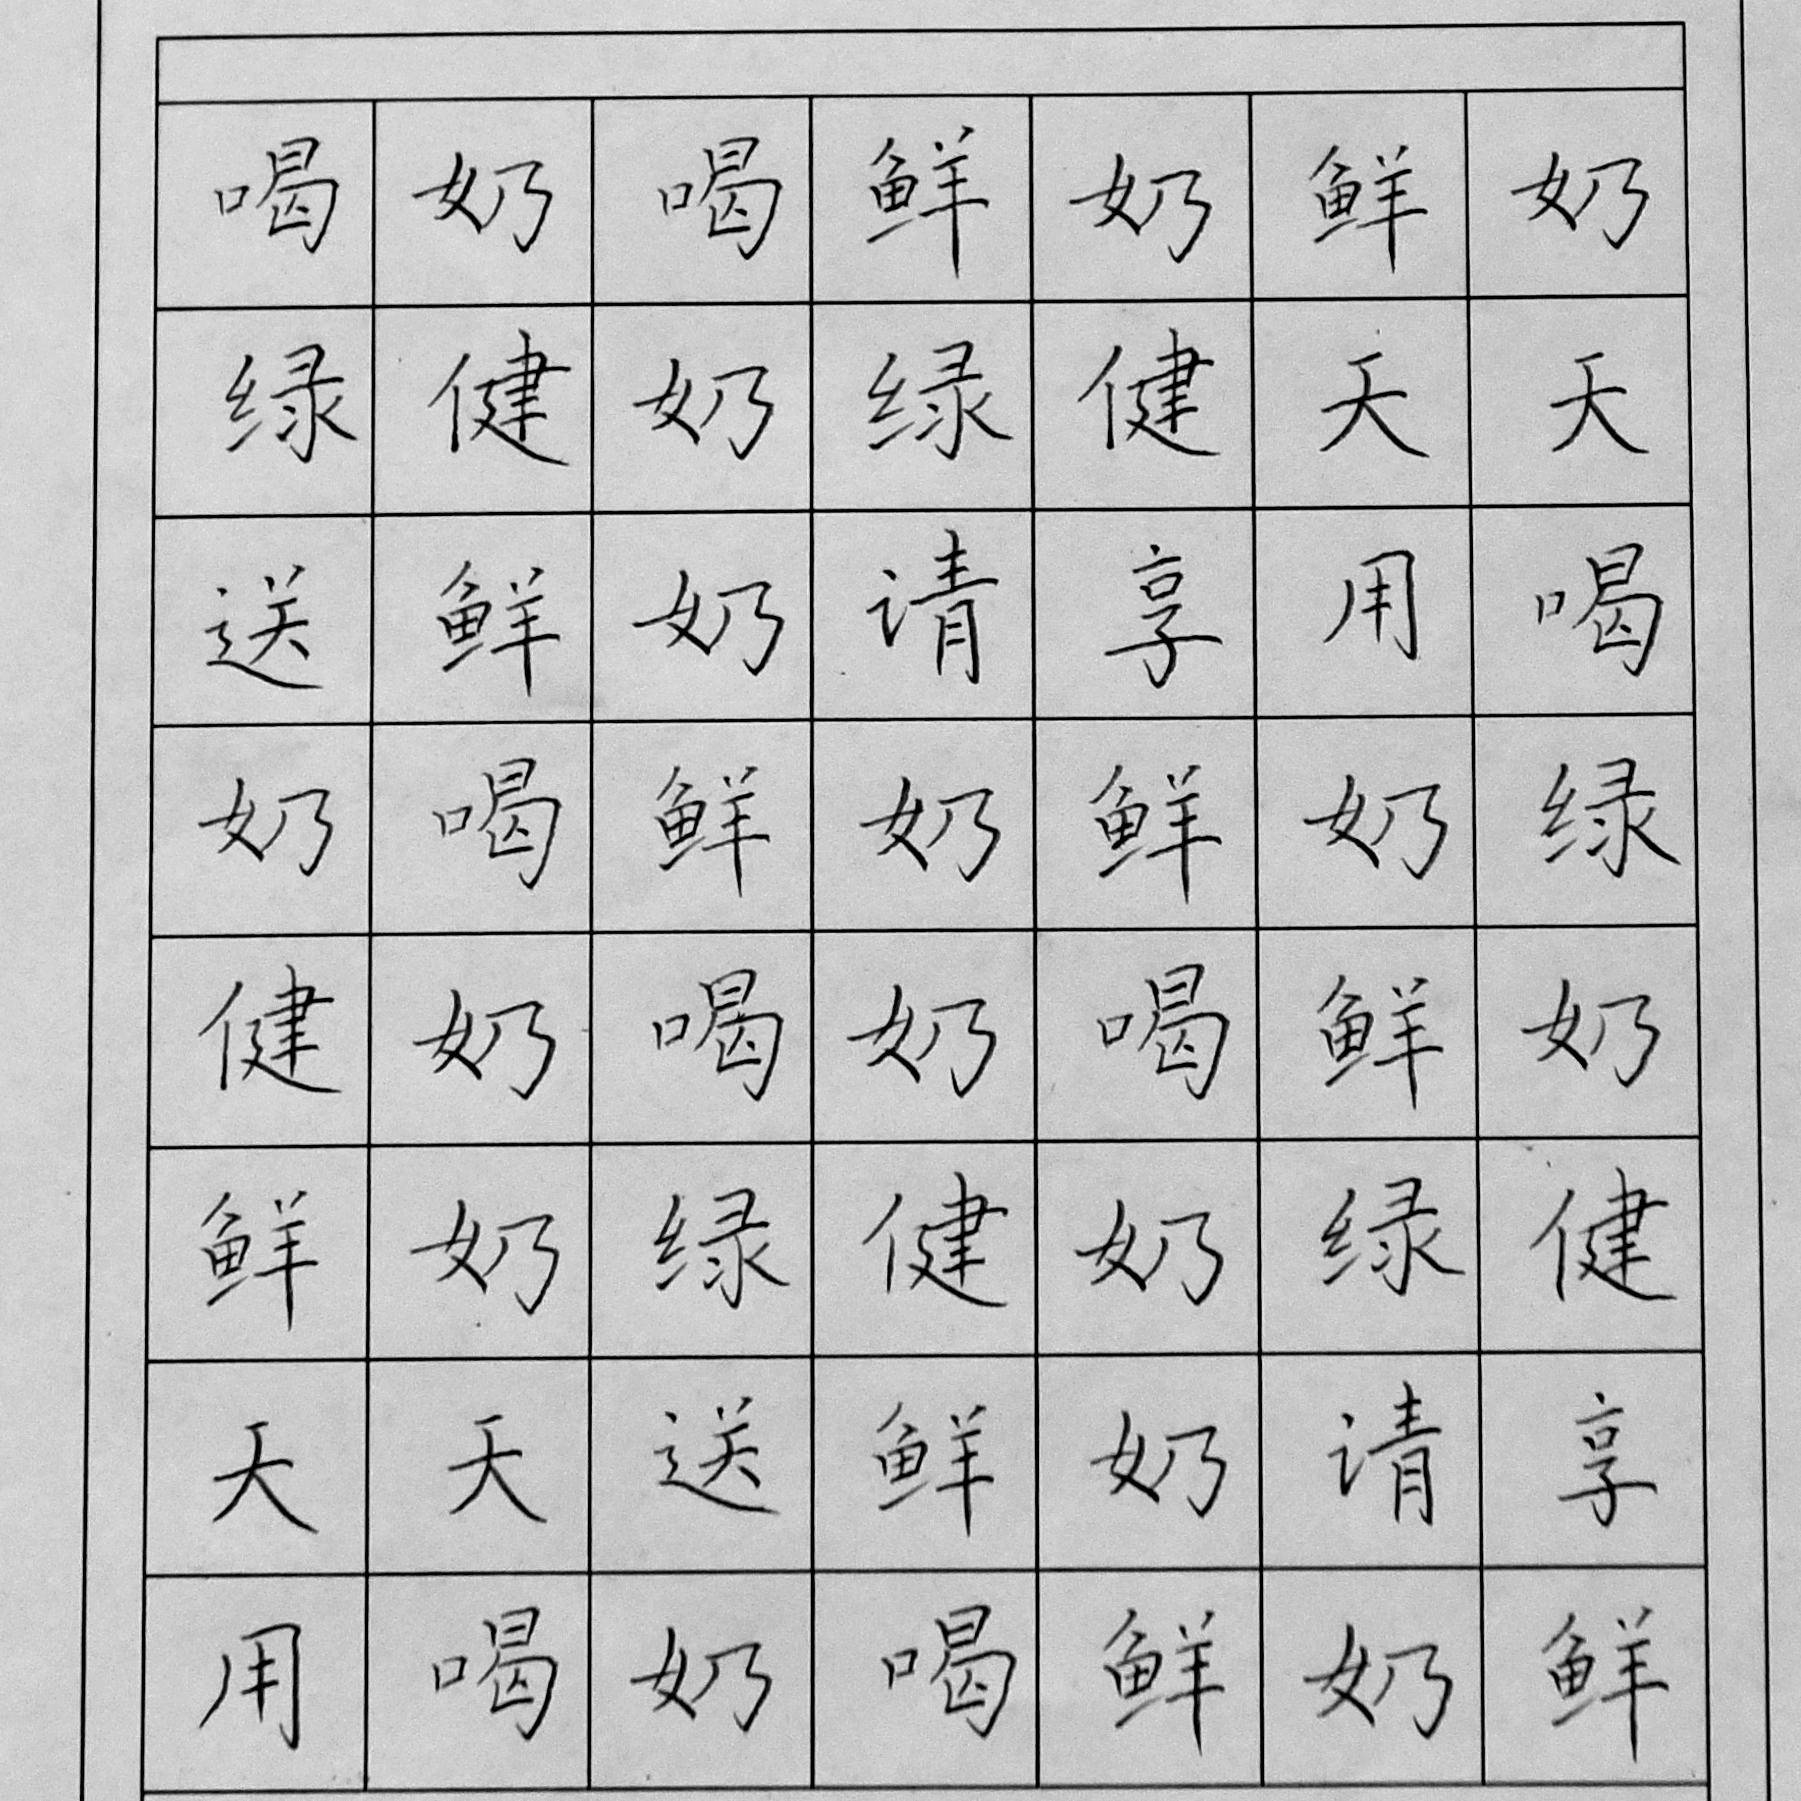 喝奶喝鲜奶鲜奶
绿健奶绿健天天
送鲜奶请享用喝
奶喝鲜奶鲜奶绿
健奶喝奶喝鲜奶
鲜奶绿健奶绿健
天天送鲜奶请享
用喝奶喝鲜奶鲜